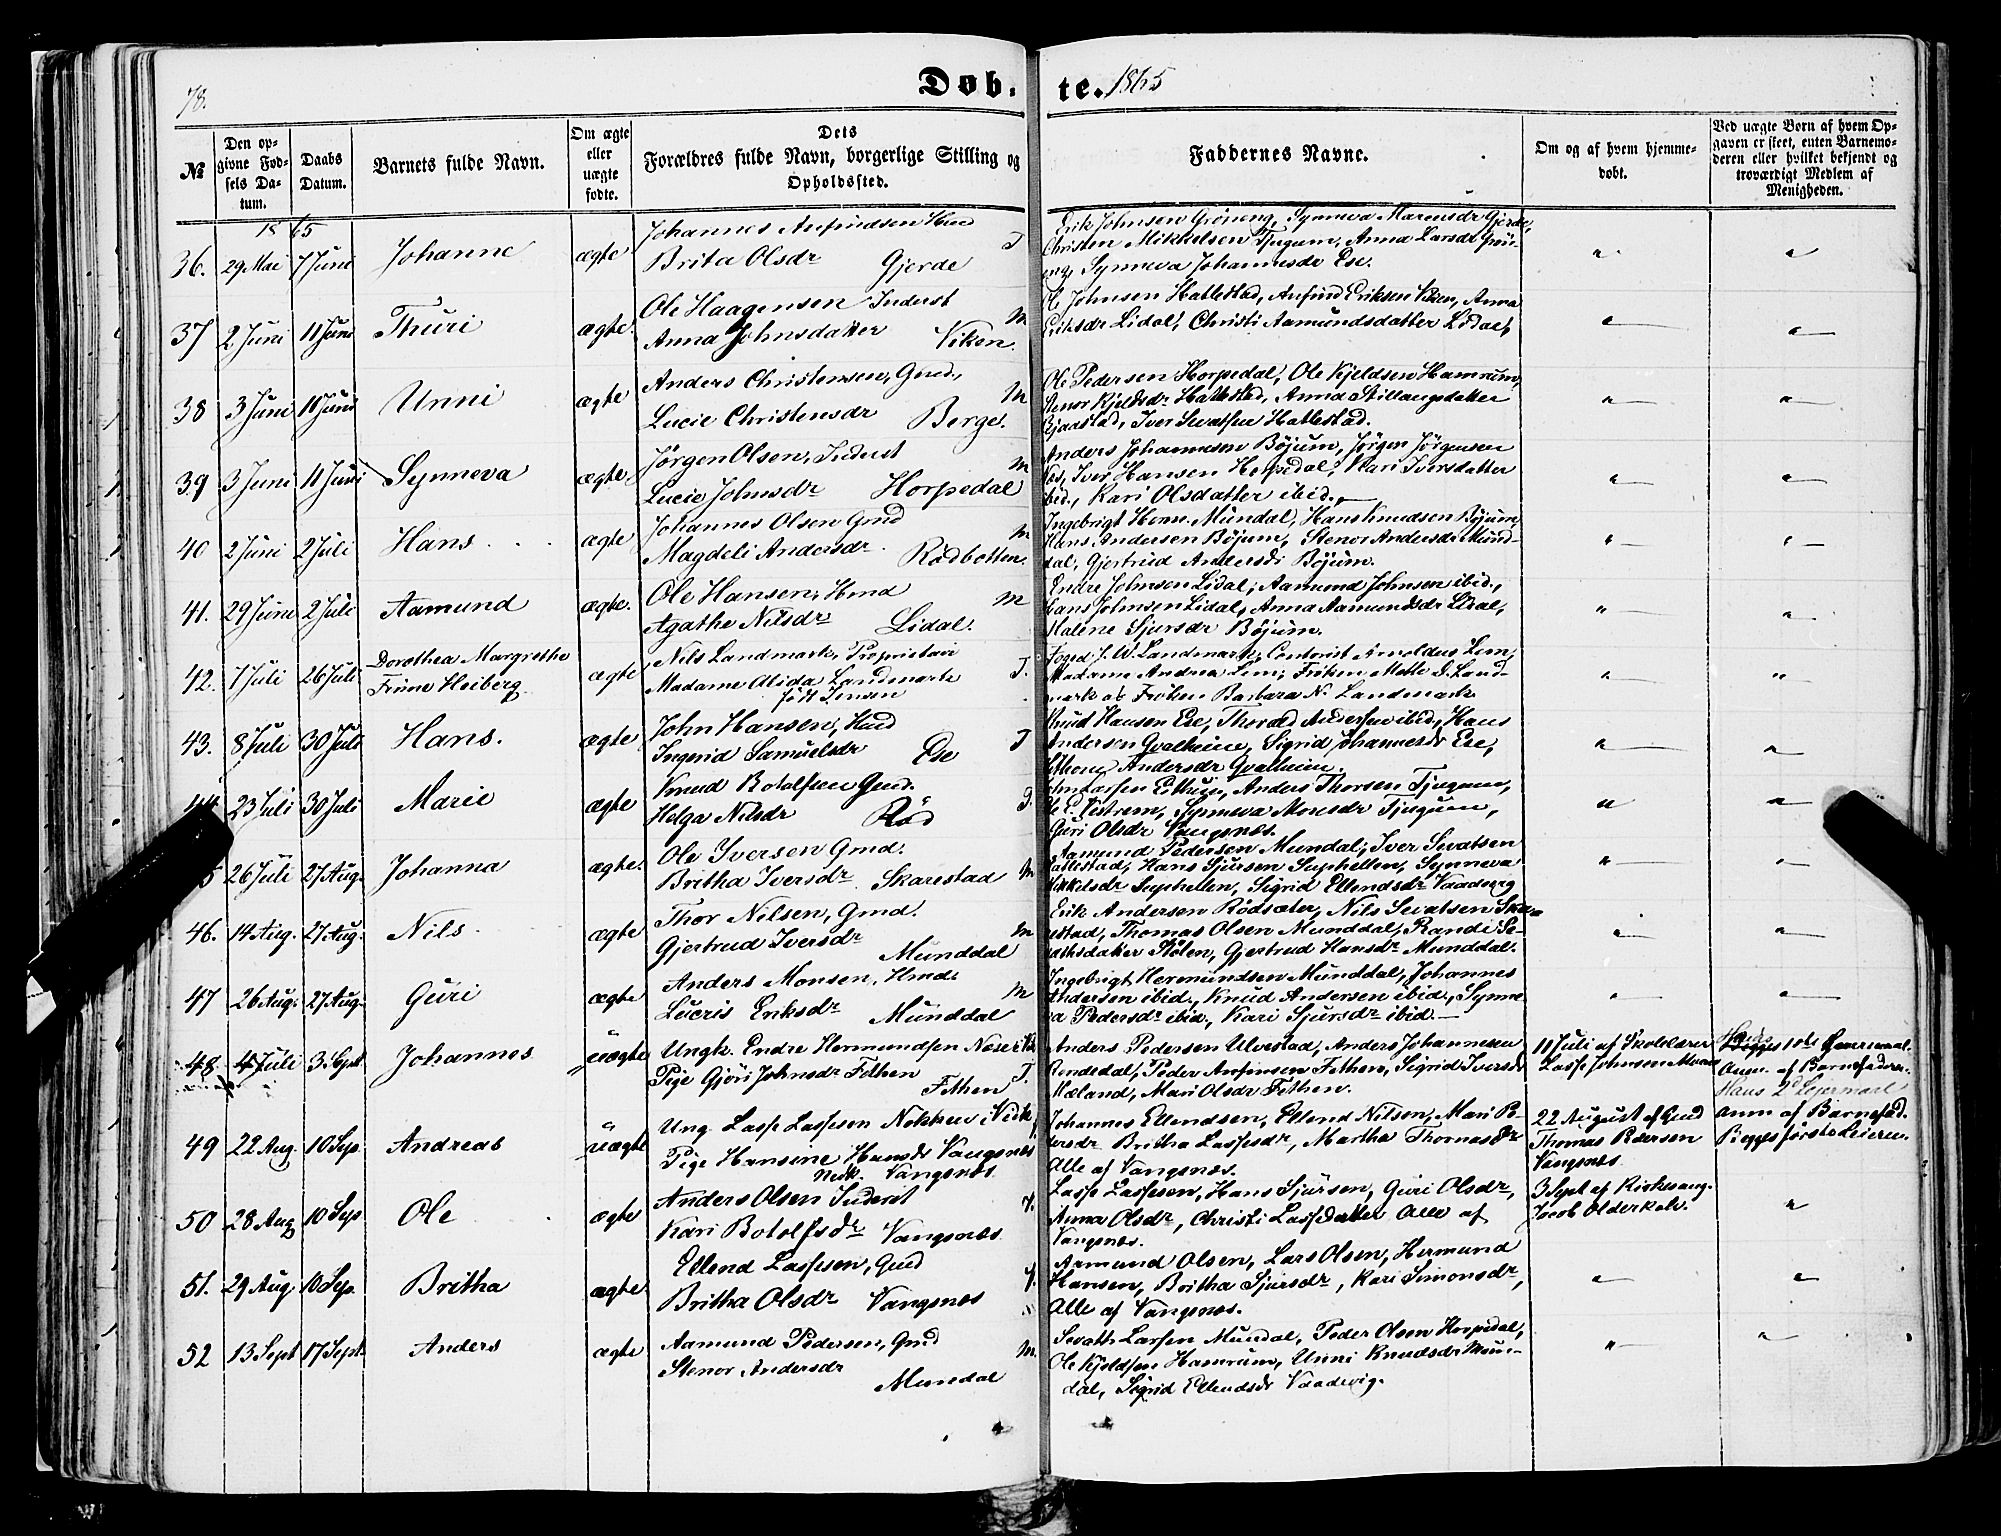 78.
Døb-te. 1865
№
Den opgivne Fødsels Datum.
Daabs Datum.
Barnets fulde Navn.
Om ægte eller uægte fødte.
Dets Forældres fulde Navn, borgerlige Stilling og Opholdssted.
Faddernes Navne.
Om og af hvem hjemmedøbt.
Ved uægte Børn af hvem Opgaven er skeet, enten Barnemoderen eller hvilket bekjendt og troværdigt Medlem af Menigheden.
1865
36. 29 Mai 7 Juni Johanne ægte
Johannes Anfindsen Hmd
Brita Olsdr Gjerde T
Erik Johnsen Grøneng, Synneva Monsdr Gjerde,
Christen Mikkelsen Tjugum, Anna Larsdr Grøn-
eng, Synneva Johannesdr Ese.
37 2 Juni 11 Juni Thuri ægte.
Ole Haagensen Inderst
Anna Johnsdatter Viken. M
Ole Johnsen Hatlestad, Anfind Eriksen Viken, Anna
Eriksdr Lidal, Christi Aamundsdatter Lidal,
38 3 Juni 11 Juni Unni ægte
Anders Christensen, Gmd,
Lucie Christensdr Berge. M
Ole Pedersen Horpedal, Ole Kjeldsen Hamrum,
Stenor Kjeldsdr Hatlestad, Anna Stillaugsdatter
Bjaastad, Iver Sevatsen Hatlestad.
39 3 Juni 11 Juni Synneva ægte.
Jørgen Olsen, Inderst
Lucie Johnsdr Horpedal M
Anders Johannesen Bøjum, Jørgen Jørgensen
Næs, Iver Hansen Horpedal, Kari Iversdatter
ibid., Kari Olsdatter ibid.,
40 2 Juni 2 Juli Hans ægte
Johannes Olsen Gmd
Magdeli Andersdr. Rødbotten. M
Ingebrigt Herm. Mundal, Hans Knudsen Bøjum,
Hans Andersen Bøjum, Stenor Andersdr Mund-
dal, Gjertrud Andersdr Bøjum.
41. 29 Juni 2 Juli Aamund ægte.
Ole Hansen, Hmd
Agathe Nilsdr Lidal. M
Endre Johnsen Lidal, Aamund Johnsen ibid.,
Hans Johnsen Lidal, Anna Aamundsdr Lidal,
Malene Sjursdr Bøjum.
42. 1 Juli 26 Juli Dorothea Margrethe
Finne Heiberg ægte
Nils Landmark, Proprietair
Madame Alida Landmark T.
født Jensen
Foged J. W. Landmark, Contorist Arnoldus Lem,
Madame Andrea Lem, Frøken Mette S. Land-
mark og Frøken Barbara N. Landmark
43. 8 Juli 30 Juli Hans. ægte
John Hansen, Hmd
Ingerid Samuelsdr Ese T
Knud Hansen Ese, Thorald Andersen ibid, Hans
Andersen Qvalheim, Sigrid Johannesdr Ese,
Andersdr Qvalheim.
44 23 Juli 30 Juli Marie ægte
Knud Botolfsen Gmd.
Helga Nilsdr Rød T.
Anders Thorsen Tjugum,
Synneva Monsdr Tjugum,
Guri Olsdr Vangsnæs.
5 26 Juli 27 Aug. Johanna ægte.
Ole Iversen Gmd.
Britha Iversdr. Skarestad M
Aamund Pedersen Mundal, Iver Sevatsen
Hatlestad, Hans Sjursen Suphellen, Synneva
Mikkelsdr Suphellen, Sigrid Ellendsdr Vaadvig
46. 14 Aug. 27 Aug. Nils ægte
Thor Nilsen, Gmd.
Gjertrud Iversdr Munddal M
Erik Andersen Rødsæter, Nils Sevatsen Ska-
restad, Thomas Olsen Munddal, Randi Se-
vathsdatter Stølen, Gjertrud Hansdr Munddal.
47 26 Aug. 27 Aug. Guri ægte
Anders Monsen, Hmd.
Lucris Eriksdr Munddal M
Ingebrigt Hermundsen Munddal, Johannes
Andersen ibid., Knud Andersen ibid., Synne-
va Pedersdr ibid., Kari Sjursdr ibid.
48 4 Juli 3 Sept Johannes uægte
Ungk. Endre Hermundsen Næse i Vik
Pige Gjøri Johnsdr Fethen
Fethen T.
Anders Pedersen Ulvestad, Anders Johannesen
Rendedal, Peder Anfinsen Fethen, Sigrid Iversdr
Mæland, Mari Olsdr Fethen.
11 Juli af Skolelærer
Lasse Johnsen
Anm. af Barnefaderen.
Hans 2d Leiermaal
49 22 Aug. 10 Sep. Andreas uægte
Ung. Lasse Lassesen Nokken i Vik
Pige Hansine Hansdr Vangsnæs
Vangsnæs
Johannes Ellendsen, Ellend Nilsen, Mari Pe-
dersdr Britha Lassesdr, Martha Thomasdr
Alle af Vangsnæs.
22 August af Gmd
Thomas Pedersen
Vangsnæs
anm af Barnefad.
Begges første Leierm.
50 28 Aug 10 Sep Ole ægte
Anders Olsen Inderst
Kari Botolfsdr Vangsnæs
Lasse Lassesen, Hans Sjursen, Guri Olsdr,
Anna Olsdr, Christi Lassedatter Alle af
Vangsnæs.
3 Sept af Kirkesang.
Jacob Olderkalv.
51. 29 Aug 10 Sep. Britha ægte
Ellend Lassesen, Gmd
Britha Olsdr Vangsnæs
Aamund Olsen, Lars Olsen, Hermund
Hansen, Britha Sjursdr, Kari Simonsdr,
Alle af Vangsnæs.
52 13 Sept 17 Sept Anders ægte
Aamund Pedersen, Gmd
Stenor Andersdr
Mundal M.
Sevath Larsen Mundal, Peder Olsen Horpedal,
Ole Kjeldsen Hamrum, Unni Knudsdr Mun-
dal, Sigrid Ellendsdr Vaadvig.